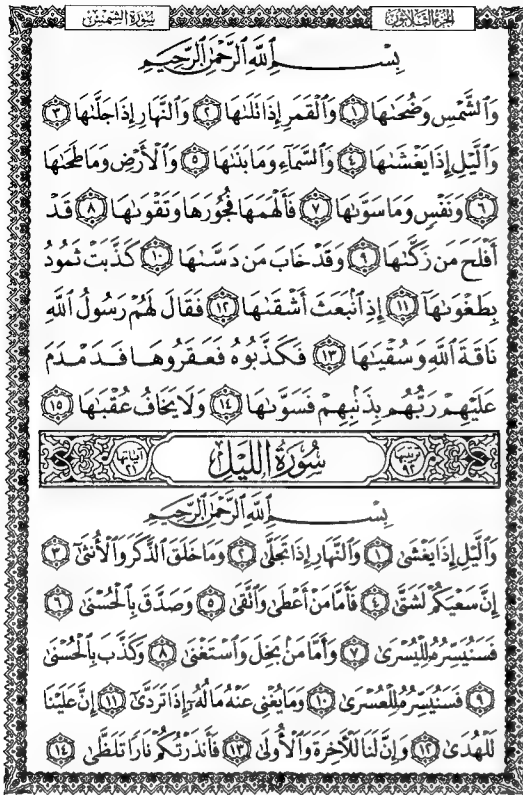 الجزء الثلاثون
سورة الشمس
بِسْمِ اللَّهِ الرَّحْمَٰنِ الرَّحِيمِ
وَالشَّمْسِ وَضُحَىٰهَا ١ وَالْقَمَرِ إِذَا تَلَىٰهَا ٢ وَالنَّهَارِ إِذَا جَلَّىٰهَا ٣
وَالَّيْلِ إِذَا يَغْشَىٰهَا ٤ وَالسَّمَاءِ وَمَا بَنَىٰهَا ٥ وَالْأَرْضِ وَمَا طَحَىٰهَا
٦ وَنَفْسٍ وَمَا سَوَّىٰهَا ٧ فَأَلْهَمَهَا فُجُورَهَا وَتَقْوَىٰهَا ٨ قَدْ
أَفْلَحَ مَن زَكَّىٰهَا ٩ وَقَدْ خَابَ مَن دَسَّىٰهَا ١٠ كَذَّبَتْ ثَمُودُ
بِطَغْوَىٰهَا ١١ إِذِ انۢبَعَثَ أَشْقَىٰهَا ١٢ فَقَالَ لَهُمْ رَسُولُ اللَّهِ
نَاقَةَ اللَّهِ وَسُقْيَٰهَا ١٣ فَكَذَّبُوهُ فَعَقَرُوهَا فَدَمْدَمَ
عَلَيْهِمْ رَبُّهُم بِذَنۢبِهِمْ فَسَوَّىٰهَا ١٤ وَلَا يَخَافُ عُقْبَٰهَا ١٥
ترتيبها ٩٢ سُورَةُ اللَّيْلِ آياتها ٢١
بِسْمِ اللَّهِ الرَّحْمَٰنِ الرَّحِيمِ
وَالَّيْلِ إِذَا يَغْشَىٰ ١ وَالنَّهَارِ إِذَا تَجَلَّىٰ ٢ وَمَا خَلَقَ الذَّكَرَ وَالْأُنثَىٰ ٣
إِنَّ سَعْيَكُمْ لَشَتَّىٰ ٤ فَأَمَّا مَنْ أَعْطَىٰ وَاتَّقَىٰ ٥ وَصَدَّقَ بِالْحُسْنَىٰ ٦
فَسَنُيَسِّرُهُ لِلْيُسْرَىٰ ٧ وَأَمَّا مَنۢ بَخِلَ وَاسْتَغْنَىٰ ٨ وَكَذَّبَ بِالْحُسْنَىٰ
٩ فَسَنُيَسِّرُهُ لِلْعُسْرَىٰ ١٠ وَمَا يُغْنِي عَنْهُ مَالُهُ إِذَا تَرَدَّىٰ ١١ إِنَّ عَلَيْنَا
لَلْهُدَىٰ ١٢ وَإِنَّ لَنَا لَلْآخِرَةَ وَالْأُولَىٰ ١٣ فَأَنذَرْتُكُمْ نَارًا تَلَظَّىٰ ١٤